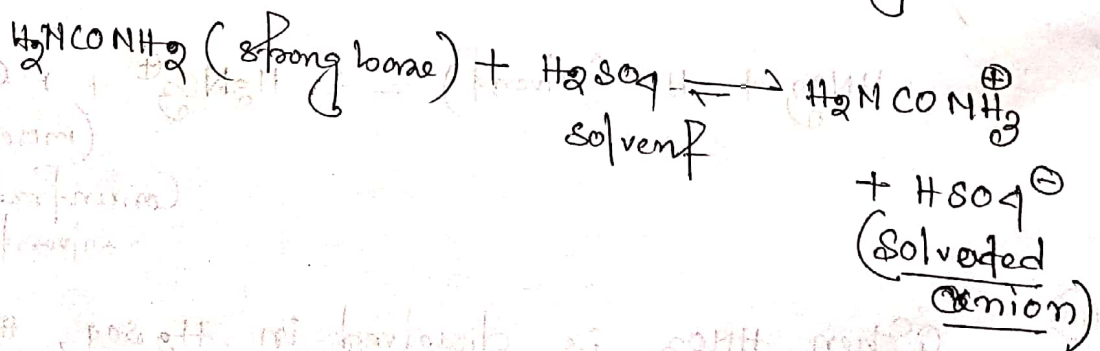 H₂NCONH₂ (strong base) + H₂SO₄ ⇌ H₂NCONH₃⊕
solvent
+ HSO₄⊖
(Solvated
anion)